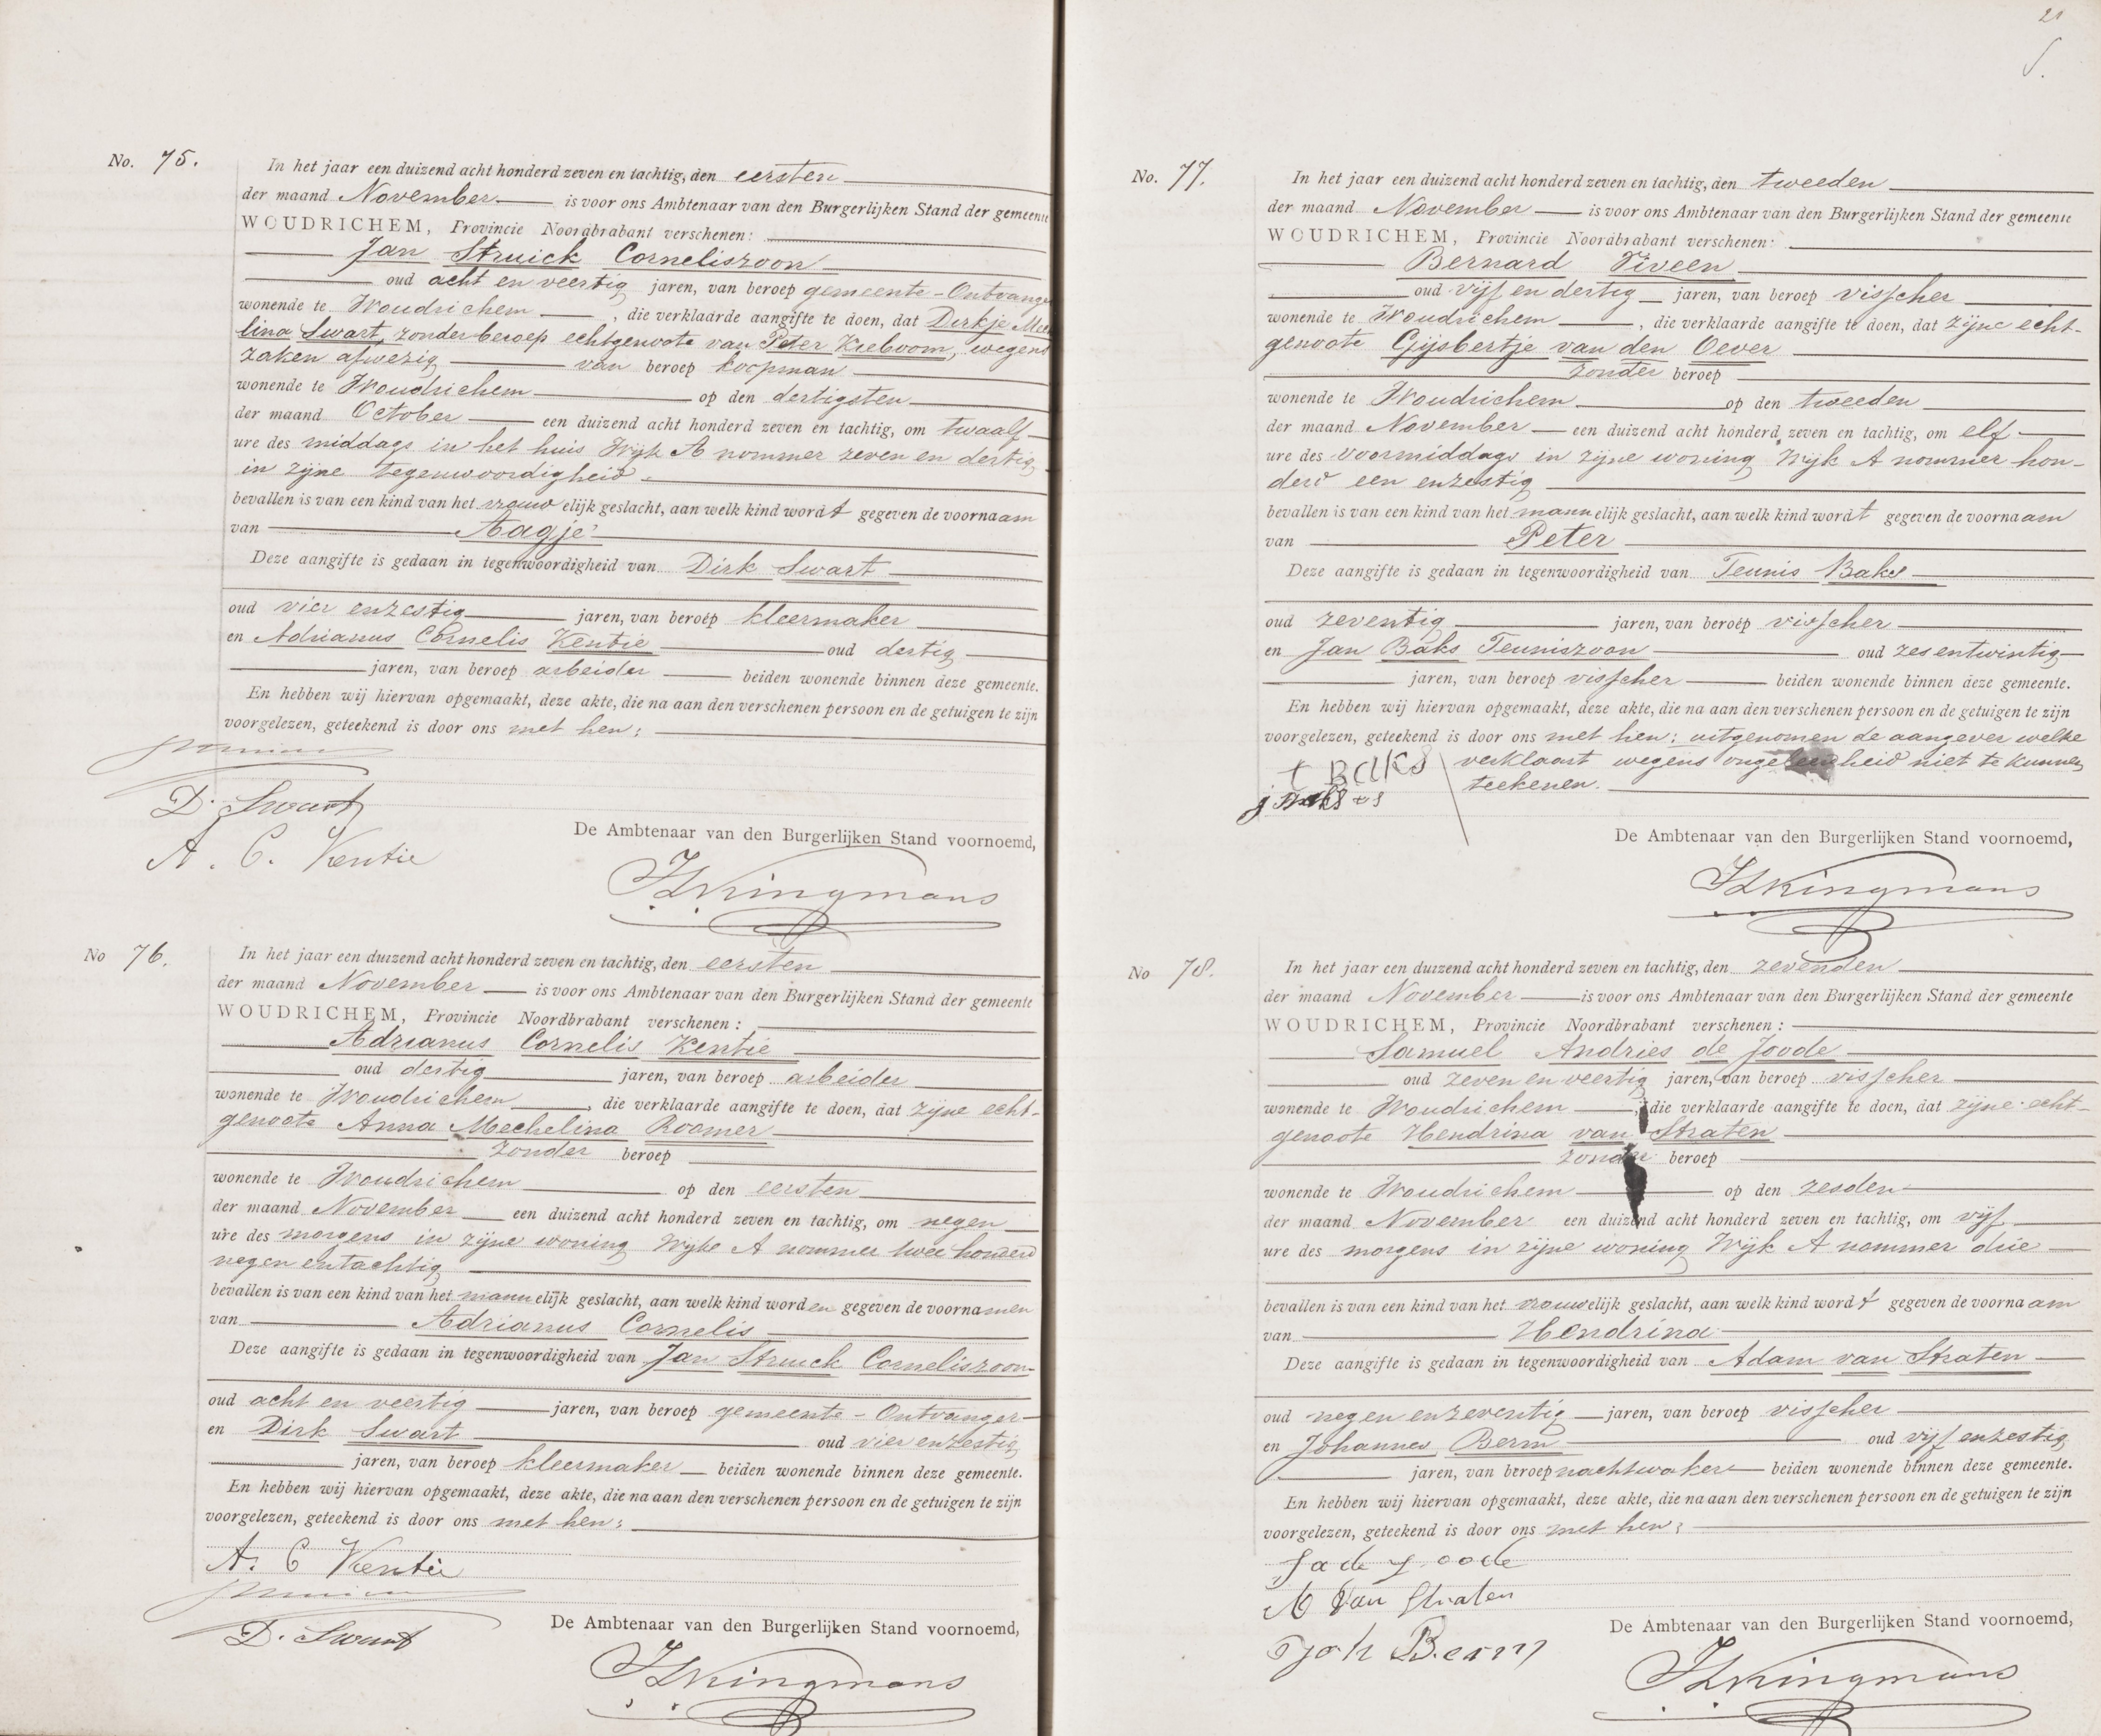 No. 75.
In het jaar een duizend acht honderd zeven en tachtig, den eersten
der maand November is voor ons Ambtenaar van den Burgerlijken Stand der gemeente
WOUDRICHEM, Provincie Noordbrabant verschenen:
Jan Struick Corneliszoon
oud acht en veertig jaren, van beroep gemeente-Ontvanger
wonende te Woudrichem, die verklaarde aangifte te doen, dat Dirkje Meche
lina Swart, zonder beroep echtgenoote van Peter Kieboom, wegens
zaken afwezig van beroep koopman
wonende te Woudrichem op den dertigsten
der maand October een duizend acht honderd zeven en tachtig, om twaalf
ure des middags in het huis Wijk A nommer zeven en dertig
in zijne tegenwoordigheid.
bevallen is van een kind van het vrouwelijk geslacht, aan welk kind wordt gegeven de voornaam
van Aagje
Deze aangifte is gedaan in tegenwoordigheid van Dirk Swart
oud vier enzestig jaren, van beroep kleermaker
en Adrianus Cornelis Kentie oud dertig
jaren, van beroep arbeider beiden wonende binnen deze gemeente.
En hebben wij hiervan opgemaakt, deze akte, die na aan den verschenen persoon en de getuigen te zijn
voorgelezen, geteekend is door ons met hen;
D. Swart
A. C. Kentie
De Ambtenaar van den Burgerlijken Stand voornoemd,
Kingmans
No 76.
In het jaar een duizend acht honderd zeven en tachtig, den eersten
der maand November is voor ons Ambtenaar van den Burgerlijken Stand der gemeente
WOUDRICHEM, Provincie Noordbrabant verschenen:
Adrianus Cornelis Kentie
oud dertig jaren, van beroep arbeider
wonende te Woudrichem, die verklaarde aangifte te doen, dat zijne echt-
genoote Anna Mechelina Roomer
zonder beroep
wonende te Woudrichem op den eersten
der maand November een duizend acht honderd zeven en tachtig, om negen
ure des morgens in zijne woning Wijk A nommer twee honderd
negen entachtig
bevallen is van een kind van het mannelijk geslacht, aan welk kind worden gegeven de voornamen
van Adrianus Cornelis
Deze aangifte is gedaan in tegenwoordigheid van Jan Struick Corneliszoon
oud acht en veertig jaren, van beroep gemeente-Ontvanger
en Dirk Swart oud vier enzestig
jaren, van beroep kleermaker beiden wonende binnen deze gemeente.
En hebben wij hiervan opgemaakt, deze akte, die na aan den verschenen persoon en de getuigen te zijn
voorgelezen, geteekend is door ons met hen;
A. C Kentie
D. Swart
De Ambtenaar van den Burgerlijken Stand voornoemd,
Kingmans
21
No. 77.
In het jaar een duizend acht honderd zeven en tachtig, den tweeden
der maand November is voor ons Ambtenaar van den Burgerlijken Stand der gemeente
WOUDRICHEM, Provincie Noordbrabant verschenen:
Bernard Viveen
oud vijf en dertig jaren, van beroep visscher
wonende te Woudrichem, die verklaarde aangifte te doen, dat zijne echt-
genoote Gijsbertje van den Oever
zonder beroep
wonende te Woudrichem op den tweeden
der maand November een duizend acht honderd zeven en tachtig, om elf
ure des voormiddags in zijne woning Wijk A nommer hon-
derd een enzestig
bevallen is van een kind van het mannelijk geslacht, aan welk kind wordt gegeven de voornaam
van Peter
Deze aangifte is gedaan in tegenwoordigheid van Teunis Baks
oud zeventig jaren, van beroep visscher
en Jan Baks Teuniszoon oud zes entwintig
jaren, van beroep visscher beiden wonende binnen deze gemeente.
En hebben wij hiervan opgemaakt, deze akte, die na aan den verschenen persoon en de getuigen te zijn
voorgelezen, geteekend is door ons met hen; uitgenomen de aangever welke
verklaart wegens ongeleerdheid niet te kunnen
teekenen.
t Baks
De Ambtenaar van den Burgerlijken Stand voornoemd,
Kingmans
No 78.
In het jaar een duizend acht honderd zeven en tachtig, den zevenden
der maand November is voor ons Ambtenaar van den Burgerlijken Stand der gemeente
WOUDRICHEM, Provincie Noordbrabant verschenen:
Samuel Andries de Joode
oud zeven en veertig jaren, van beroep visscher
wonende te Woudrichem, die verklaarde aangifte te doen, dat zijne echt-
genoote Hendrina van Straten
zonder beroep
wonende te Woudrichem op den zesden
der maand November een duizend acht honderd zeven en tachtig, om vijf
ure des morgens in zijne woning Wijk A nommer drie
bevallen is van een kind van het vrouwelijk geslacht, aan welk kind wordt gegeven de voornaam
van Hendrina
Deze aangifte is gedaan in tegenwoordigheid van Adam van Straten
oud negen enzeventig jaren, van beroep visscher
en Johannes Berm oud vijf enzestig
jaren, van beroep nachtwaker beiden wonende binnen deze gemeente.
En hebben wij hiervan opgemaakt, deze akte, die na aan den verschenen persoon en de getuigen te zijn
voorgelezen, geteekend is door ons met hen;
Sa de Joode
A Van Straten
Joh Berm
De Ambtenaar van den Burgerlijken Stand voornoemd,
Kingmans